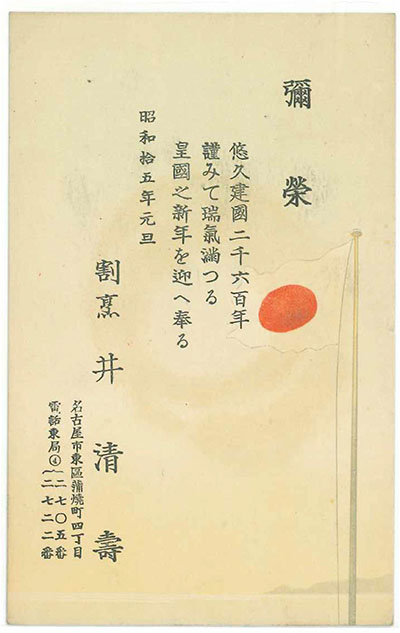 彌榮
悠久建國二千六百年
謹みて瑞氣滿つる
皇國之新年を迎へ奉る
昭和拾五年元旦
割烹 井淸壽
名古屋市東區蒲燒町四丁目
電話東局④二七〇五番
二七二二番